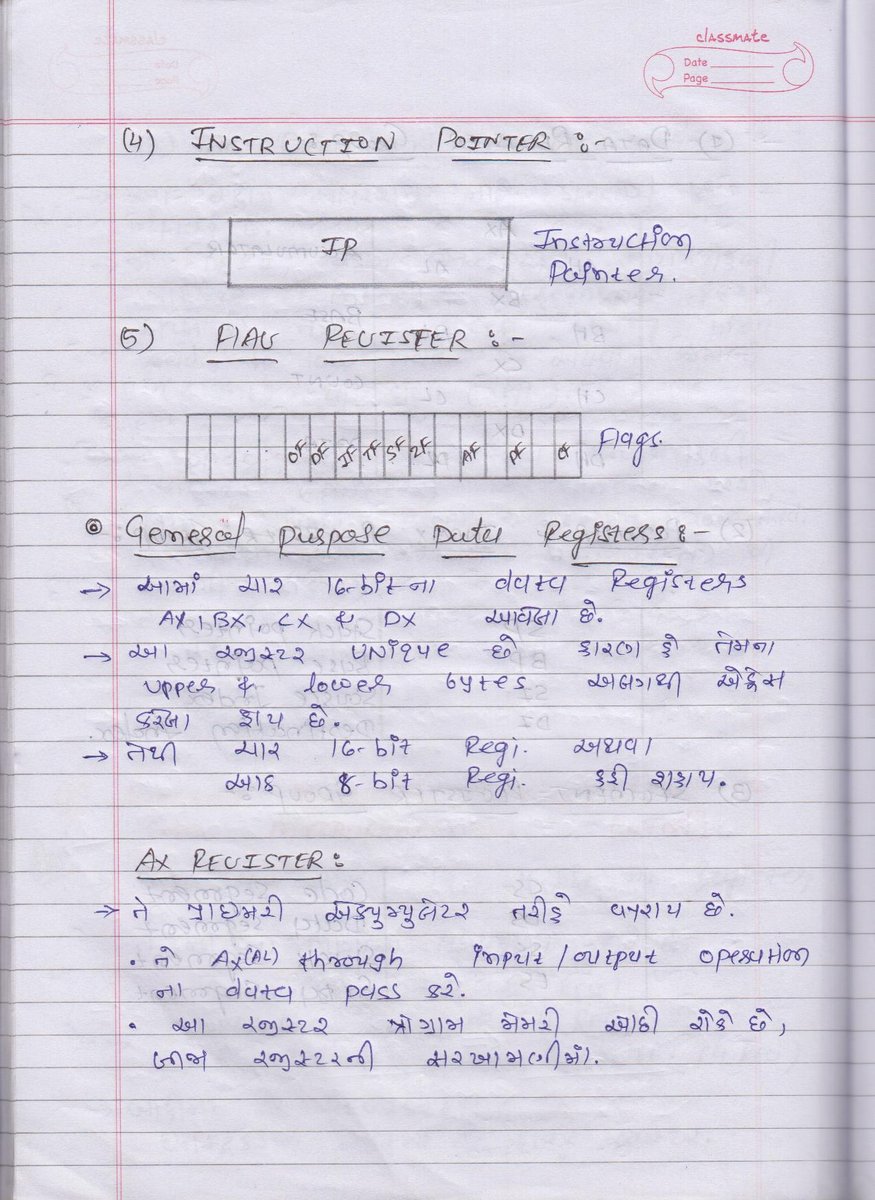 classmate
Date
Page
(4) INSTRUCTION POINTER :-
IP
Instruction
Pointer.
(5) FLAG REGISTER :-
OF DF IF TF SF ZF AF PF CF Flags.
General Purpose Data Registers :-
→ આમાં ચાર 16-bit ના Registers
AX, BX, CX & DX આવેલા છે.
→ આ રજીસ્ટર UNIQUE છે કારણ કે તેમના
upper & lower bytes અલગથી એક્સેસ
કરેલા હોય છે.
→ તેથી ચાર 16-bit Regi. અથવા
આઠ 8-bit Regi. કહી શકાય.
AX REGISTER :
→ તે પ્રાઇમરી એક્યુમ્યુલેટર તરીકે વપરાય છે.
• તે AX(AL) through input/output operation
ના pass કરે.
• આ રજીસ્ટર પ્રોગ્રામ મેમરી ઓછી રોકે છે,
બીજા રજીસ્ટરની સરખામણીમાં.